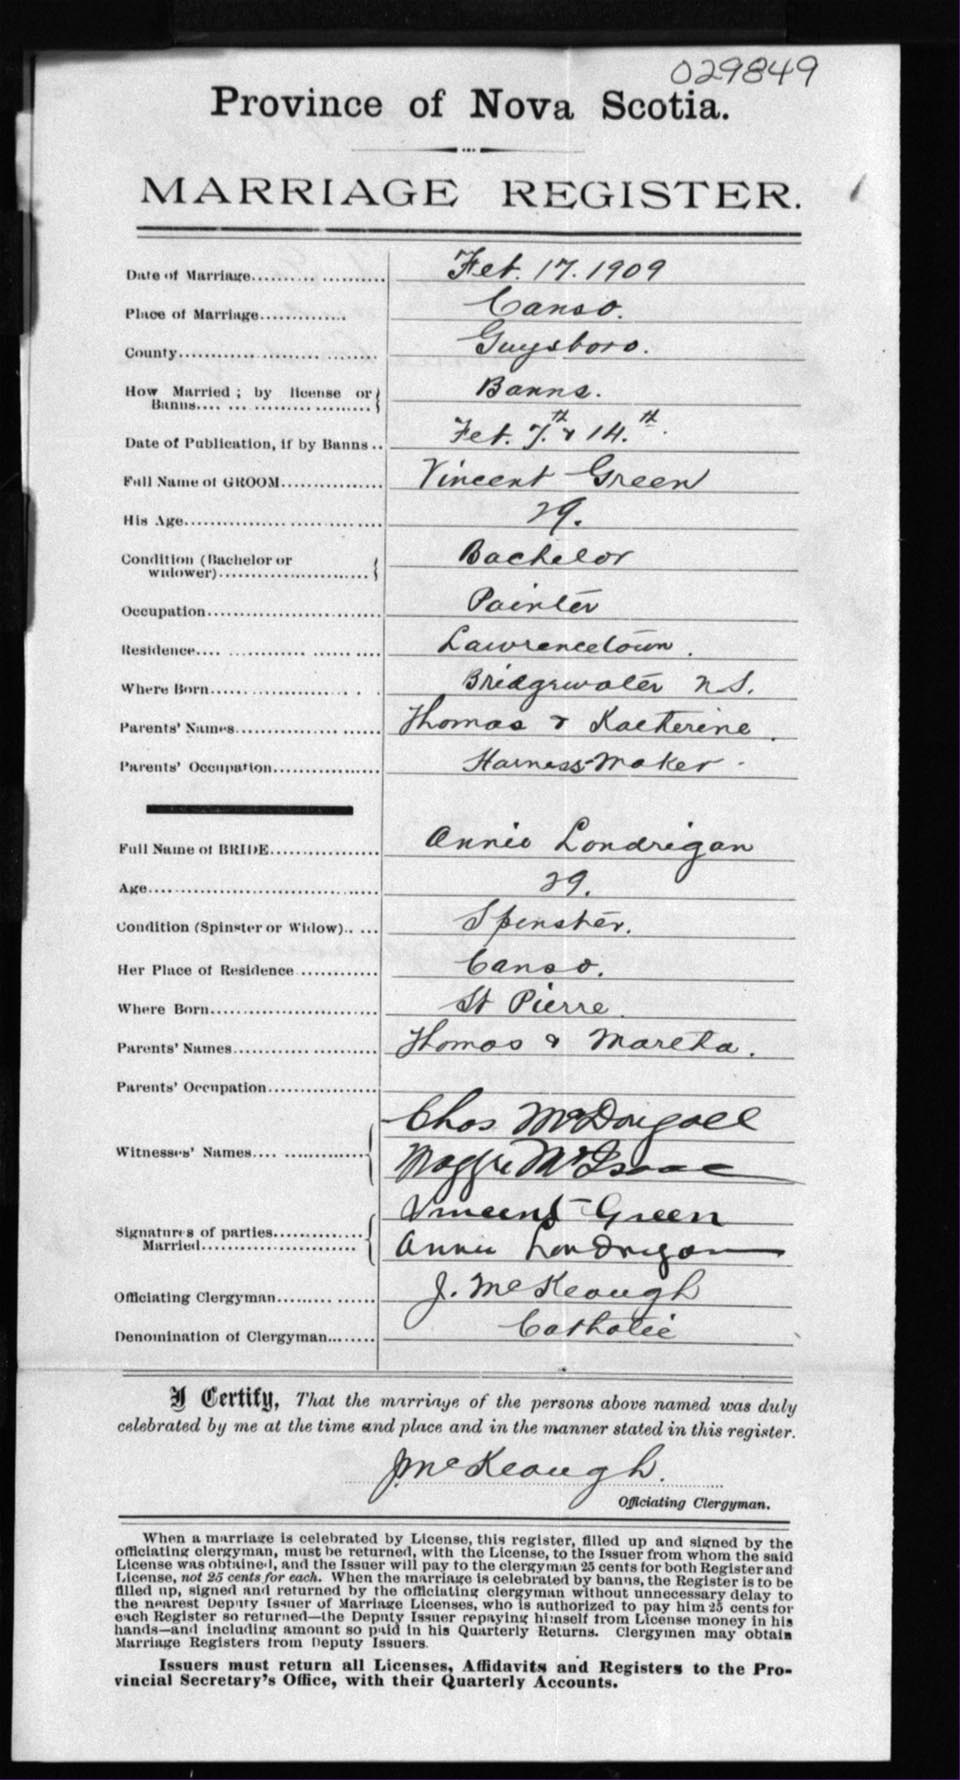 029849
Province of Nova Scotia.
MARRIAGE REGISTER.
Date of Marriage.......... .......... Feb. 17. 1909
Place of Marriage............. Canso.
County............ .......... ....... Guysboro.
How Married ; by license or
Banns.... ... .............. ......... Banns.
Date of Publication, if by Banns .. Feb. 7.th & 14.th.
Full Name of GROOM............... Vincent Green
His Age.......................... ..... 29.
Condition (Bachelor or
widower)........................ Bachelor
Occupation.......................... Painter
Residence.... ............ ..... ..... Lawrencetown.
Where Born................ .. . . Bridgewater N.S.
Parents' Names............... ....... Thomas & Katherine.
Parents' Occupation................ Harness-Maker -
Full Name of BRIDE................ Annie Londrigan
Age.......................... ...... 29.
Condition (Spinster or Widow).. ... Spinster.
Her Place of Residence ............ Canso.
Where Born......................... St Pierre.
Parents' Names............ ......... Thomas & Martha.
Parents' Occupation................
Chas McDougall
Witnesses' Names.... .............. Maggie McIsaac
Vincent Green
Signatures of parties..............
Married......................... Annie Londrigan
Officiating Clergyman......... ...... J. McKeough
Denomination of Clergyman........ Catholic
I Certify, That the marriage of the persons above named was duly
celebrated by me at the time and place and in the manner stated in this register.
J. McKeough.
Officiating Clergyman.
When a marriage is celebrated by License, this register, filled up and signed by the
officiating clergyman, must be returned, with the License, to the Issuer from whom the said
License was obtained, and the Issuer will pay to the clergyman 25 cents for both Register and
License, not 25 cents for each. When the marriage is celebrated by banns, the Register is to be
filled up, signed and returned by the officiating clergyman without unnecessary delay to
the nearest Deputy Issuer of Marriage Licenses, who is authorized to pay him 25 cents for
each Register so returned—the Deputy Issuer repaying himself from License money in his
hands—and including amount so paid in his Quarterly Returns. Clergymen may obtain
Marriage Registers from Deputy Issuers.
Issuers must return all Licenses, Affidavits and Registers to the Pro-
vincial Secretary's Office, with their Quarterly Accounts.